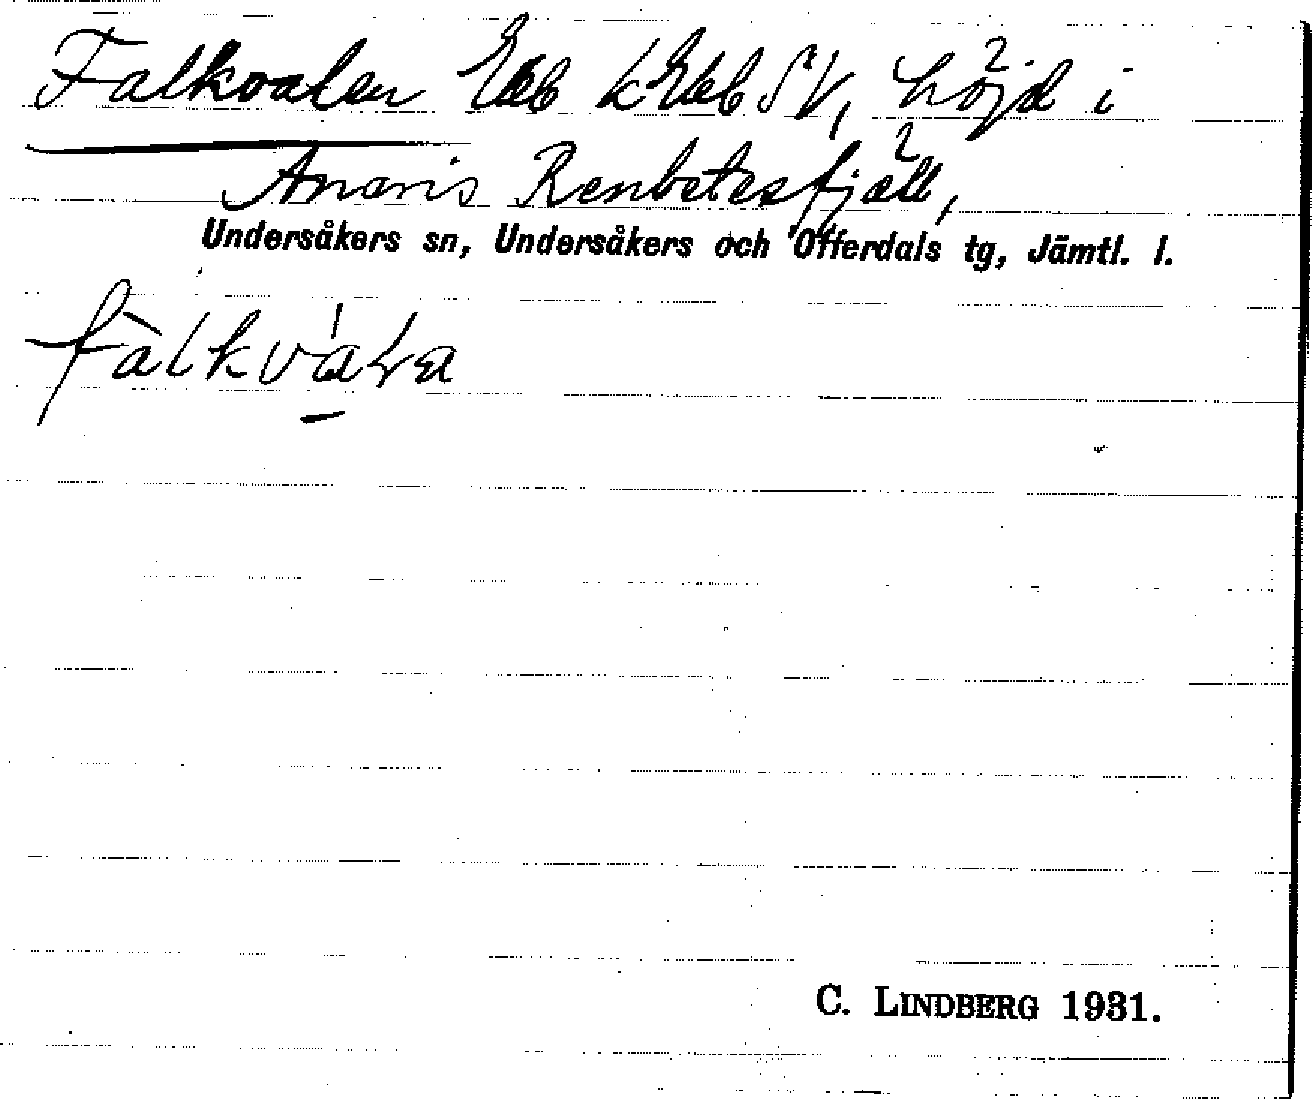 Falkvalen Eab kEkbSV, höjd i
Anaris Renbetesfjäll,
Undersåkers sn, Undersåkers och Offerdals tg, Jämtl. l.
fàlkváɫa
C. LINDBERG 1931.